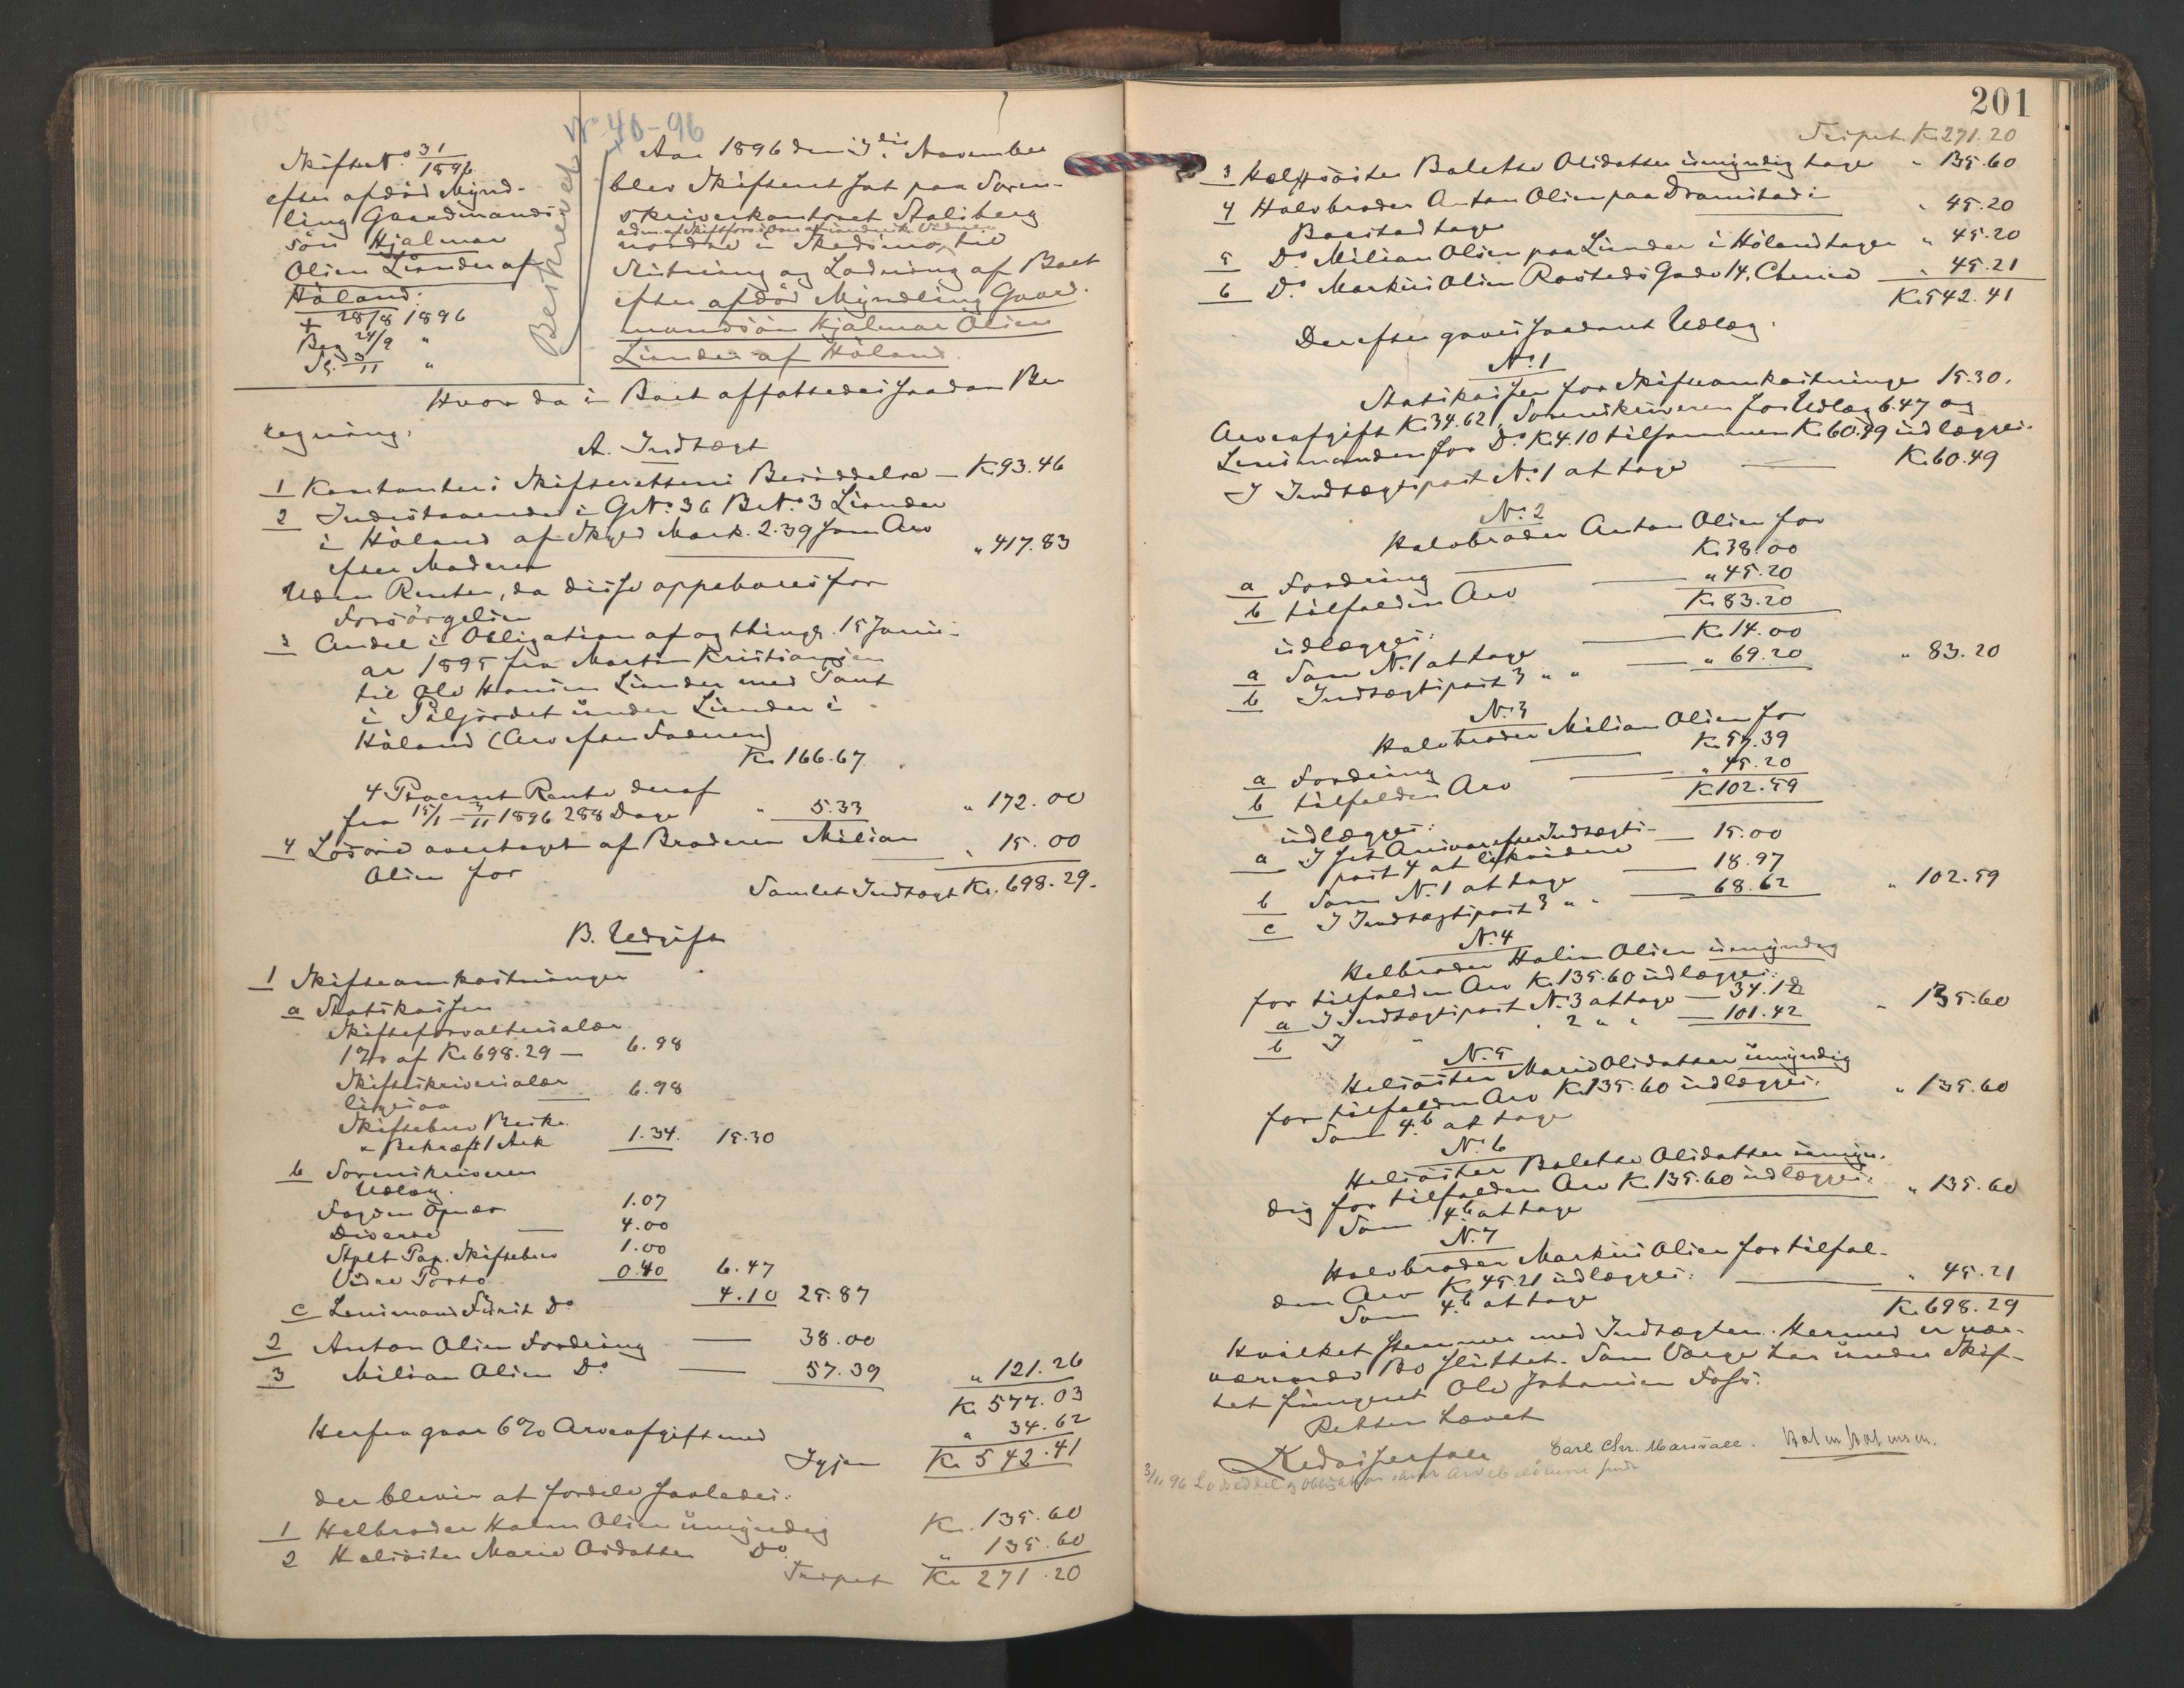 No 40-96
Skifte No 31/1896
efter afdød Mynd-
ling Gaardmands-
søn Hjalmar
Olsen Lierder af
Høland.
+ 28/8 1896
Beg 24/9 "
Sl. 3/11 "
Beskrevet
Aar 1896 den 3die November
blev Skifteret sat paa Soren-
skriverkontoret Stalsberg
adm. af Skiftforv. i Overv. af underskr. Vidner
nordre i Skedsmo, til
Slutning og Lodning af Boet
efter afdød Myndling Gaard-
mandssøn Hjalmar Olsen
Lierder af Høland.
Hvor da i Boet affattedes saadan Be-
regning:
A. Indtægt
1 Kontanter i Skifterettens Besiddelse — Kr 93.46
2 Indestaaende i GNo 36 BrNo 3 Lierder
i Høland af Skyld Mark. 2.39 som Arv
efter Moderen " 417.83
Uden Renter, da disse oppebæres for
Forsørgelsen
3 Andel i Obligation af og thingl. 15 Janu-
ar 1895 fra Martin Kristiansen
til Ole Hansen Lierder med Pant
i under Lierder i
Høland (Arv efter Faderen)
Kr. 166.67.
4 Procent Rente deraf
fra 15/1 - 3/11 1896 288 Dage " 5.33 " 172.00
4 Løsøre overtaget af Broderen Milian
Olsen for " 15.00
Samlet Indtægt Kr. 698.29.
B. Udgift
1 Skifteomkostninger
a Statskassen
Skifteforvaltersalær
1% af Kr 698.29 — 6.98
Skifteskriversalær
ligesaa — 6.98
Skiftebrev Besk.
& Bekræft 1 Ark 1.34. 15.30
b Sorenskriveren
Udlæg.
Fogden 1.07
Diverse — 4.00
Stplt Pap. Skiftebrev 1.00
Videre Porto 0.40 6.47
c Lensmand Do 4.10 25.87
2 Anton Olsen Fordring — 38.00
3 Milian Olsen Do — 57.39 " 121.26
Kr 577.03
Herfra gaar 6% Arveafgift med " 34.62
Igjen Kr 542.41
der bliver at fordele saaledes:
1 Helbroder Halm Olsen umyndig Kr. 135.60
2 Helsøster Marie Olsdatter Do " 135.60
Trspt Kr 271.20
201
Trspt. Kr 271.20
3 Helsøster Balette Olsdatter umyndig tager " 135.60
4 Halvbroder Anton Olsen paa Dramstad i
Baastad tager " 45.20
5 Do Milian Olsen paa Lierder i Høland tager " 45.20
6 Do Markus Olsen Rosteds Gade 14, Chrnia " 45.21
Kr 542.41
Derefter gaves saadant Udlæg:
No 1
Statskassen for Skifteomkostninger 15.30,
Arveafgift Kr 34.62, Sorenskriveren for Udlæg 6.47 og
Lensmanden for Do Kr 4.10 tilsammen Kr. 60.49 udlægges:
I Indtægtspost No 1 at tage — Kr. 60.49
No 2
Halvbroder Anton Olsen for
a Fordring — Kr 38.00
b tilfalden Arv — " 45.20
Kr 83.20
udlægges:
a Som No 1 at tage — Kr. 14.00
b Indtægtspost 3 " " — " 69.20 " 83.20
No 3
Halvbroder Milian Olsen for
a Fordring — Kr. 57.39
b tilfalden Arv — " 45.20
Kr 102.59
udlægges:
a I sit Ansvar efter Indtægts-
post 4 at likvidere — 15.00
b Som No 1 at tage — 18.97
c I Indtægtspost 3 " " — 68.62 " 102.59
No 4
Helbroder Halm Olsen umyndig
for tilfalden Arv Kr. 135.60 udlægges:
a I Indtægtspost No 3 at tage — 34.18
b I " " 2 " " — 101.42 " 135.60
No 5
Helsøster Marie Olsdatter umyndig
for tilfalden Arv Kr 135.60 udlægges:
Som 4.b at tage " 135.60
No 6
Helsøster Balette Olsdatter umyn-
dig for tilfalden Arv Kr. 135.60 udlægges:
Som 4.b at tage " 135.60
No 7
Halvbroder Markus Olsen for tilfal-
den Arv Kr. 45.21 udlægges:
Som 4.b at tage — " 45.21
Kr. 698.29
Hvilket stemmer med Indtægten. Hermed er nær-
værende Bo sluttet. Som Værge har under Skif-
tet fungeret Ole Johansen Foss.
Retten hævet
Carl Chr. Marsvall.
3/11 96 Lodseddel og Obligation samt Arvebeløbene